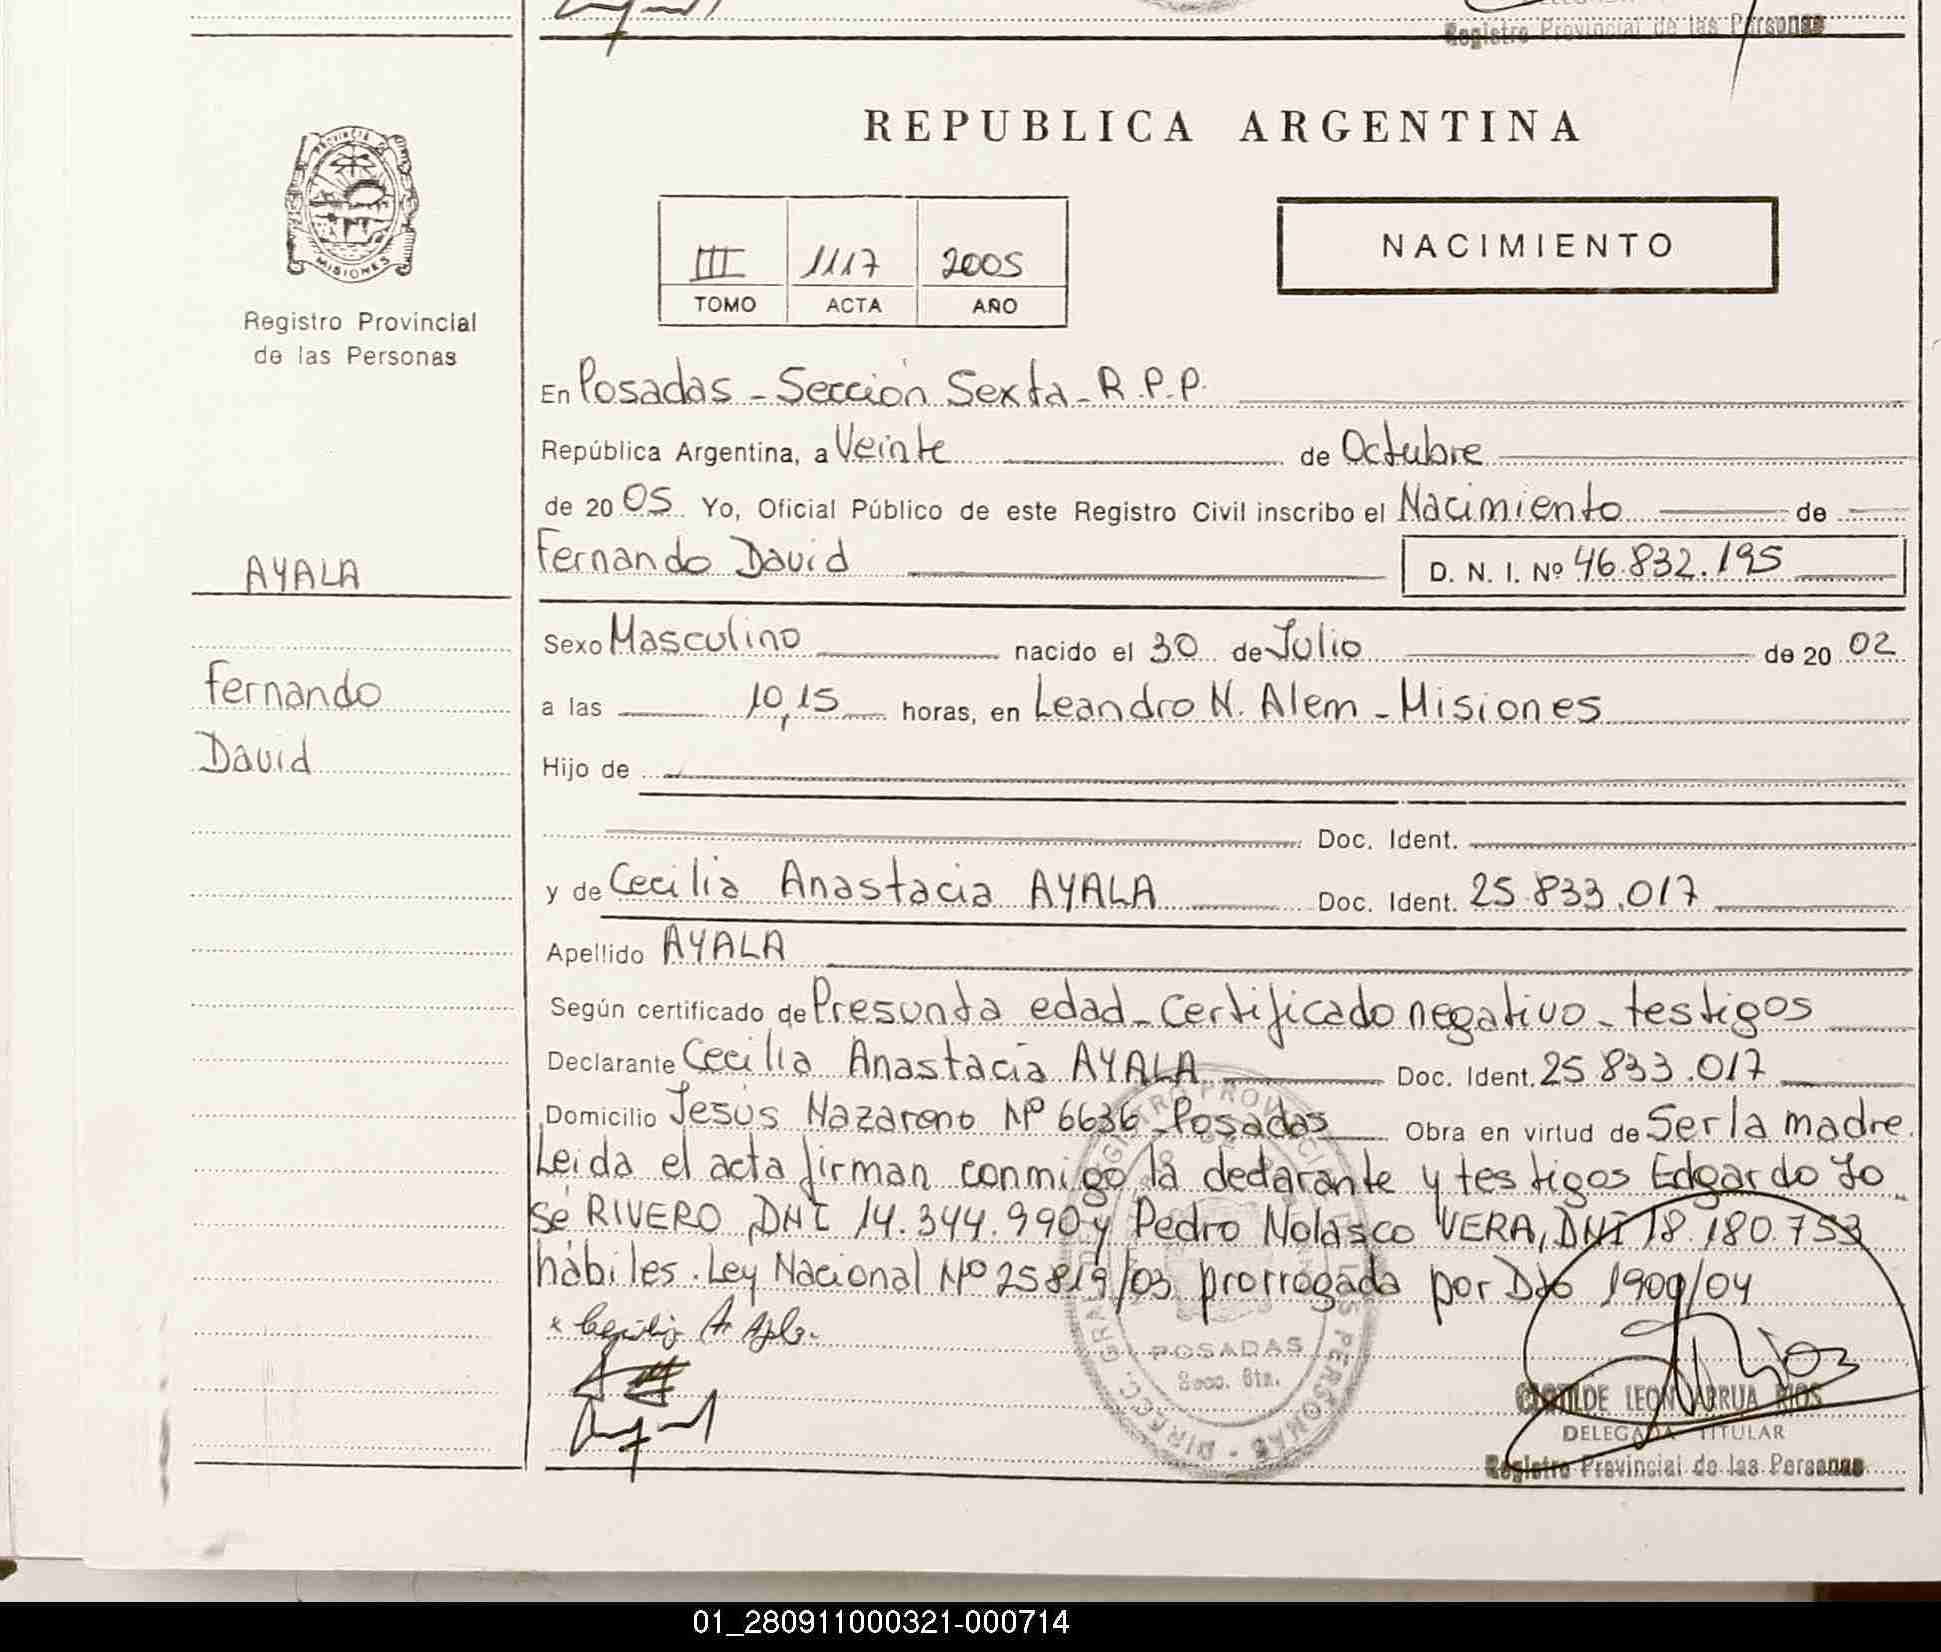 Registro Provincial de las Personas
REPUBLICA ARGENTINA
PROVINCIA DE
MISIONES
Registro Provincial
de las Personas
III 1117 2005
TOMO ACTA AÑO
NACIMIENTO
En Posadas - Sección Sexta - R.P.P.
República Argentina, a Veinte de Octubre
de 20 05 Yo, Oficial Público de este Registro Civil inscribo el Nacimiento de
Fernando David D. N. I. Nº 46.832.195
AYALA
Fernando
David
Sexo Masculino nacido el 30 de Julio de 20 02
a las 10,15 horas, en Leandro N. Alem - Misiones
Hijo de
Doc. Ident.
y de Cecilia Anastacia AYALA Doc. Ident. 25.833.017
Apellido AYALA
Según certificado de Presunta edad - Certificado negativo - testigos
Declarante Cecilia Anastacia AYALA Doc. Ident. 25.833.017
Domicilio Jesús Nazareno Nº 6636 - Posadas Obra en virtud de Ser la madre.
Leida el acta firman conmigo la declarante y testigos Edgardo Jo
sé RIVERO, DNI 14.344.990 y Pedro Nolasco VERA, DNI 18.180.753
hábiles. Ley Nacional Nº 25819/03 prorrogada por Dto 1900/04
POSADAS
Secc. 6ta.
CLOTILDE LEON ARRUA RIOS
DELEGADA TITULAR
Registro Provincial de las Personas
01_280911000321-000714